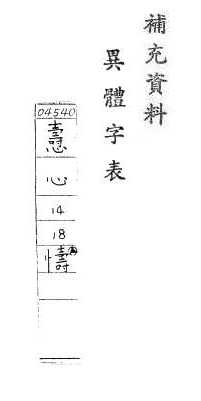 補充資料
異體字表
04540
心
14
18
懤